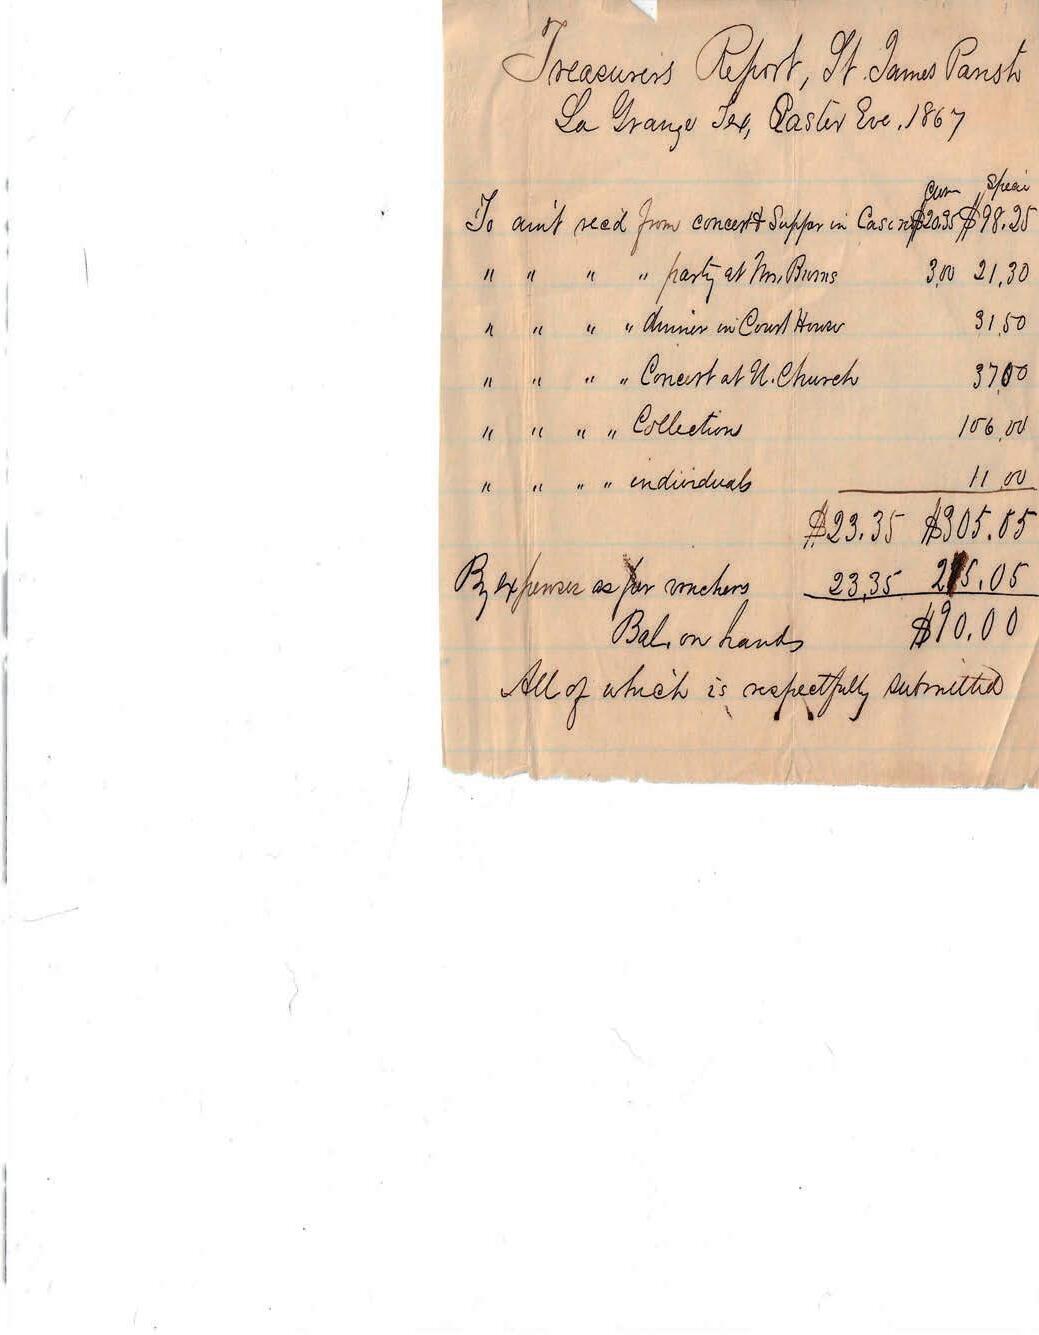 Treasurers Report, St. James Parish
La Grange Tex, Easter Eve. 1867
Curr Specie
To am't rec'd from concert & Supper in Casino $20.35 $98.25
" " " " party at Mrs. Burns 3.00 21.30
" " " " dinner in Court House 31.50
" " " " Concert at U. Church 37.00
" " " " Collections 106.00
" " " " individuals 11.00
$23.35 $305.05
By expenses as per vouchers 23.35 215.05
Bal. on hands $90.00
All of which is respectfully submitted